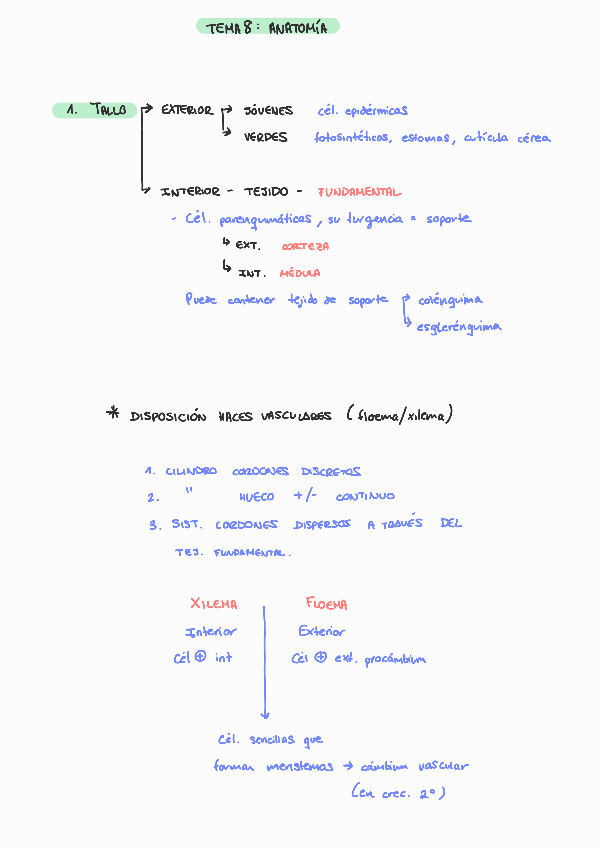 TEMA 8: ANATOMÍA
1. TALLO → EXTERIOR → JÓVENES cél. epidérmicas
→ VERDES fotosintéticos, estomas, cutícula cérea
→ INTERIOR - TEJIDO - FUNDAMENTAL
- Cél. parenquimáticas, su turgencia = soporte
↳ EXT. CORTEZA
↳ INT. MÉDULA
Puede contener tejido de soporte → colénquima
→ esglerénquima
* DISPOSICIÓN HACES VASCULARES (floema/xilema)
1. CILINDRO CORDONES DISCRETOS
2. " HUECO +/- CONTINUO
3. SIST. CORDONES DISPERSOS A TRAVÉS DEL
TEJ. FUNDAMENTAL.
XILEMA FLOEMA
Interior Exterior
Cél ⊕ int Cél ⊕ ext. procámbium
Cél. sencillas que
forman meristemos → cámbium vascular
(en crec. 2º)